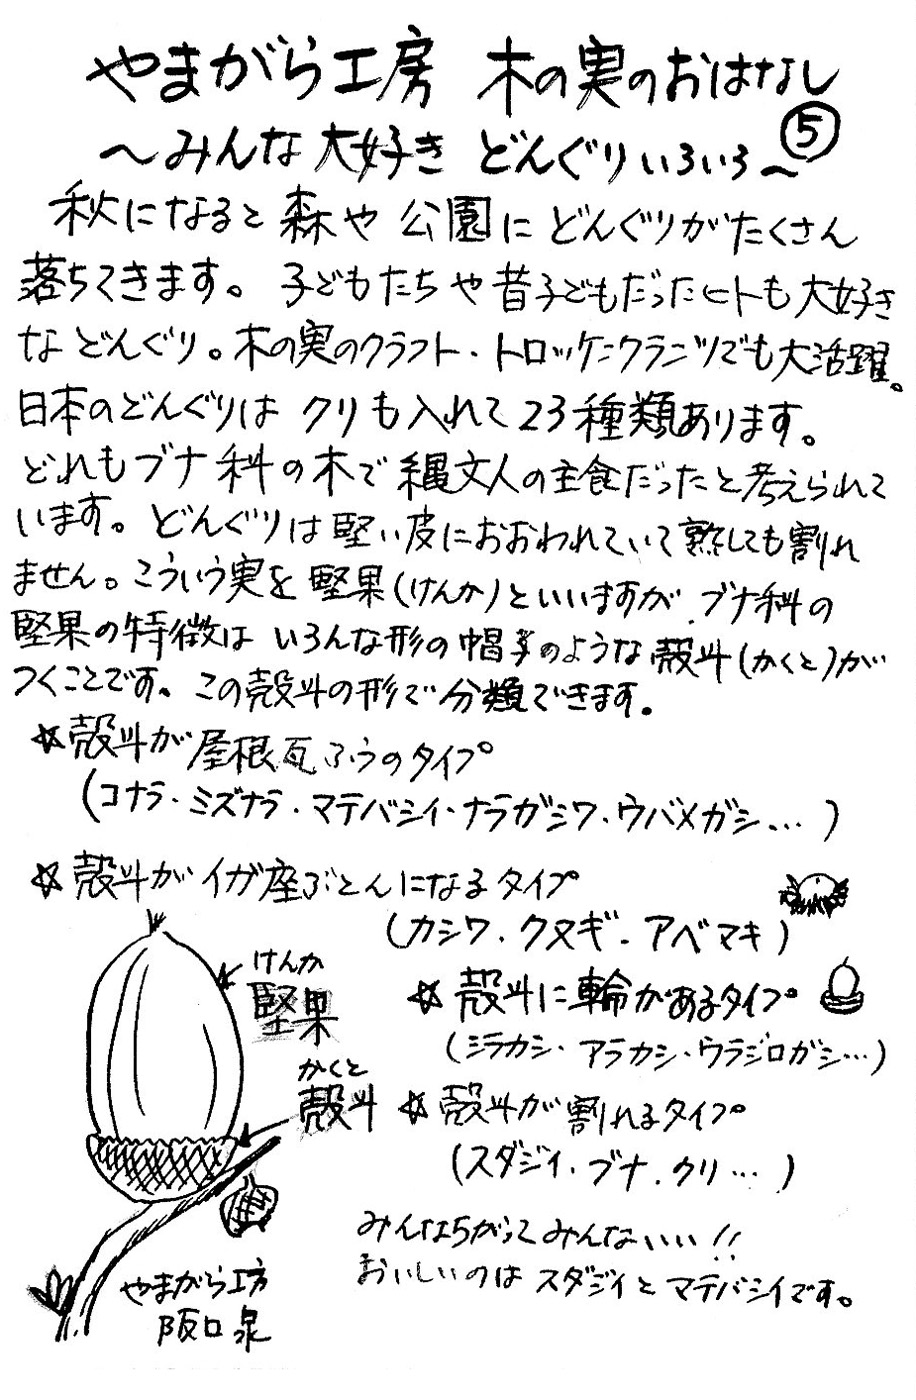 やまがら工房 木の実のおはなし
⑤
～みんな大好き どんぐりいろいろ～
秋になると森や公園にどんぐりがたくさん
落ちてきます。子どもたちや昔子どもだったヒトも大好き
などんぐり。木の実のクラフト・トロッケンクランツでも大活躍。
日本のどんぐりは クリも入れて23種類あります。
どれもブナ科の木で縄文人の主食だったと考えられて
います。どんぐりは堅い皮におおわれていて熟しても割れ
ません。こういう実を堅果(けんか)といいますが、ブナ科の
堅果の特徴は いろんな形の帽子のような殻斗(かくと)が
つくことです。この殻斗の形で分類できます。
☆殻斗が屋根瓦ふうのタイプ
(コナラ・ミズナラ・マテバシイ・ナラガシワ・ウバメガシ…)
☆殻斗がイガ座ぶとんになるタイプ
(カシワ・クヌギ・アベマキ)
けんか
堅果
☆殻斗に輪があるタイプ
(シラカシ・アラカシ・ウラジロガシ…)
かくと
殻斗
☆殻斗が割れるタイプ
(スダジイ・ブナ・クリ…)
みんなちがってみんないい!!
おいしいのはスダジイとマテバシイです。
やまがら工房
阪口泉